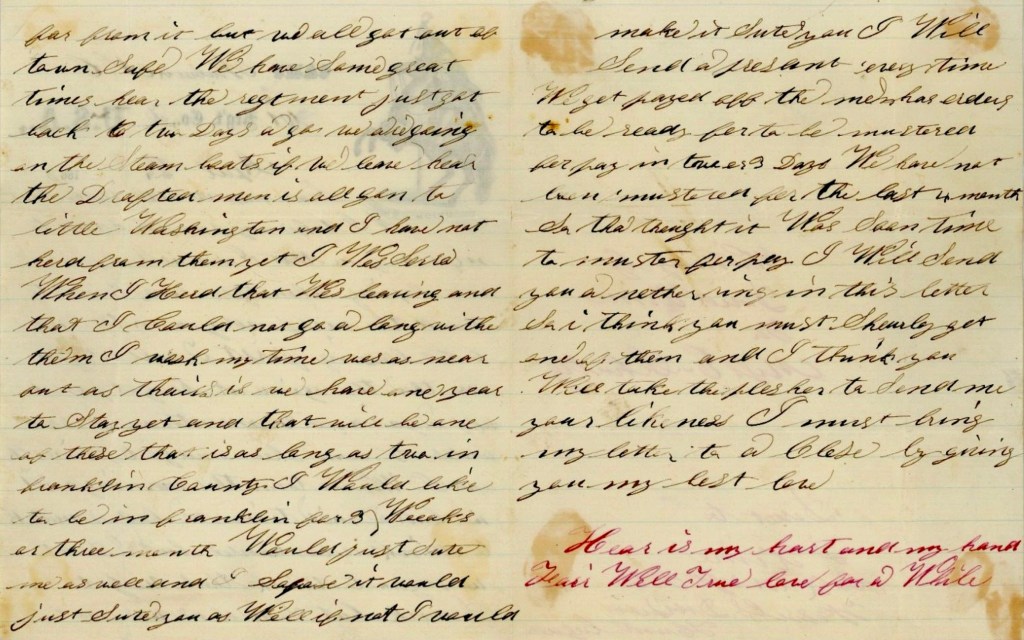 far from it but we all got out of
town Safe We have Some great
times hear the regtment just got
back to two Days a go we are going
on the Steam boats if we leave hear
the Drafted men is all gon to
little Washington and I have not
herd from them yet I Was Sorrd
When I Herd that Was leaving and
that I Could not go a long withe
them I wesh my time was as near
out as thairs is we have one year
to Stay yet and that will be one
of these that is as long as two in
franklin County I Would like
to be in franklin for 3 Weeaks
or three month Would just Sute
me as well and I Sopose it would
just Sute you as Well if not I would
make it Sute you I Will
Send a present every time
We get payed off the men has orders
to be ready for to be mustered
for pay in two er 3 Days We have not
been mustered for the last 4 month
So tha thought it Was Soon time
to muster for pay I Will Send
you a nother ring in this letter
So i think you must Shurly get
one of them and I think you
Will take the plesher to Send me
your likeness I must bring
my letter to a Close by giving
you my best love
Hear is my heart and my hand
Fair Well True love for a While